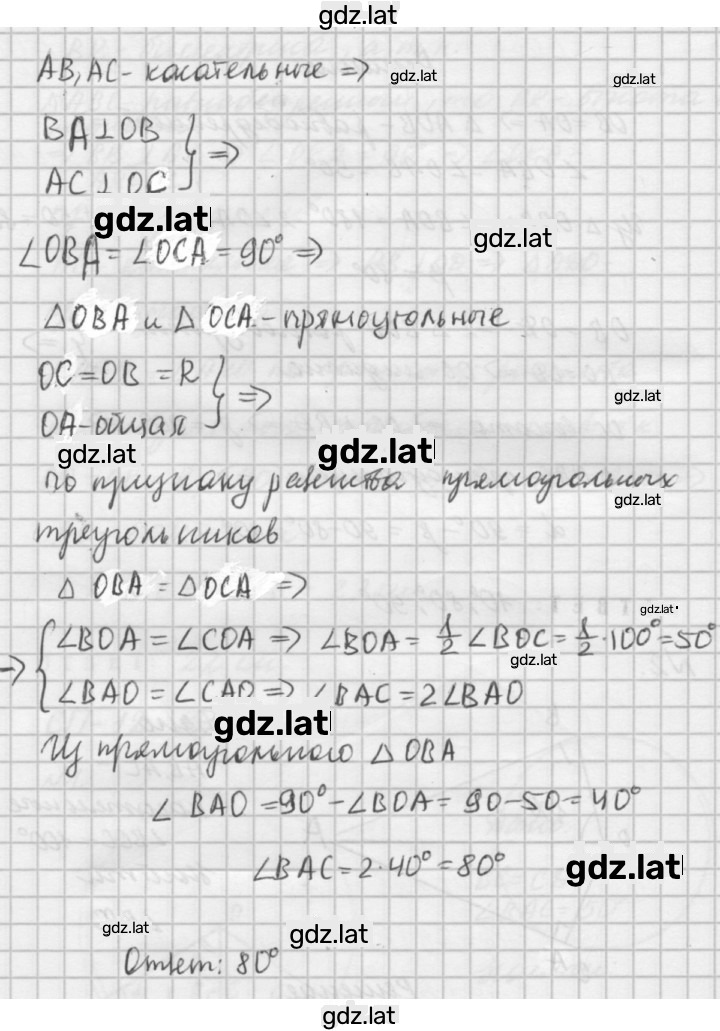 gdz.lat
AB, AC - касательные => gdz.lat gdz.lat
BA⊥OB
AC⊥OC } =>
gdz.lat gdz.lat
∠OBA = ∠OCA = 90° =>
△OBA и △OCA - прямоугольные
OC = OB = R
OA - общая } =>
gdz.lat
gdz.lat gdz.lat
по признаку равенства прямоугольных
gdz.lat
треугольников
△ OBA = △OCA =>
gdz.lat
=> { ∠BOA = ∠COA => ∠BOA = 1/2 ∠BOC = 1/2 · 100° = 50°
gdz.lat
∠BAO = ∠CAO => ∠BAC = 2∠BAO
gdz.lat
Из прямоугольного △ OBA
∠ BAO = 90° - ∠BOA = 90 - 50 = 40°
∠BAC = 2·40° = 80° gdz.lat
gdz.lat gdz.lat
Ответ: 80°
gdz.lat